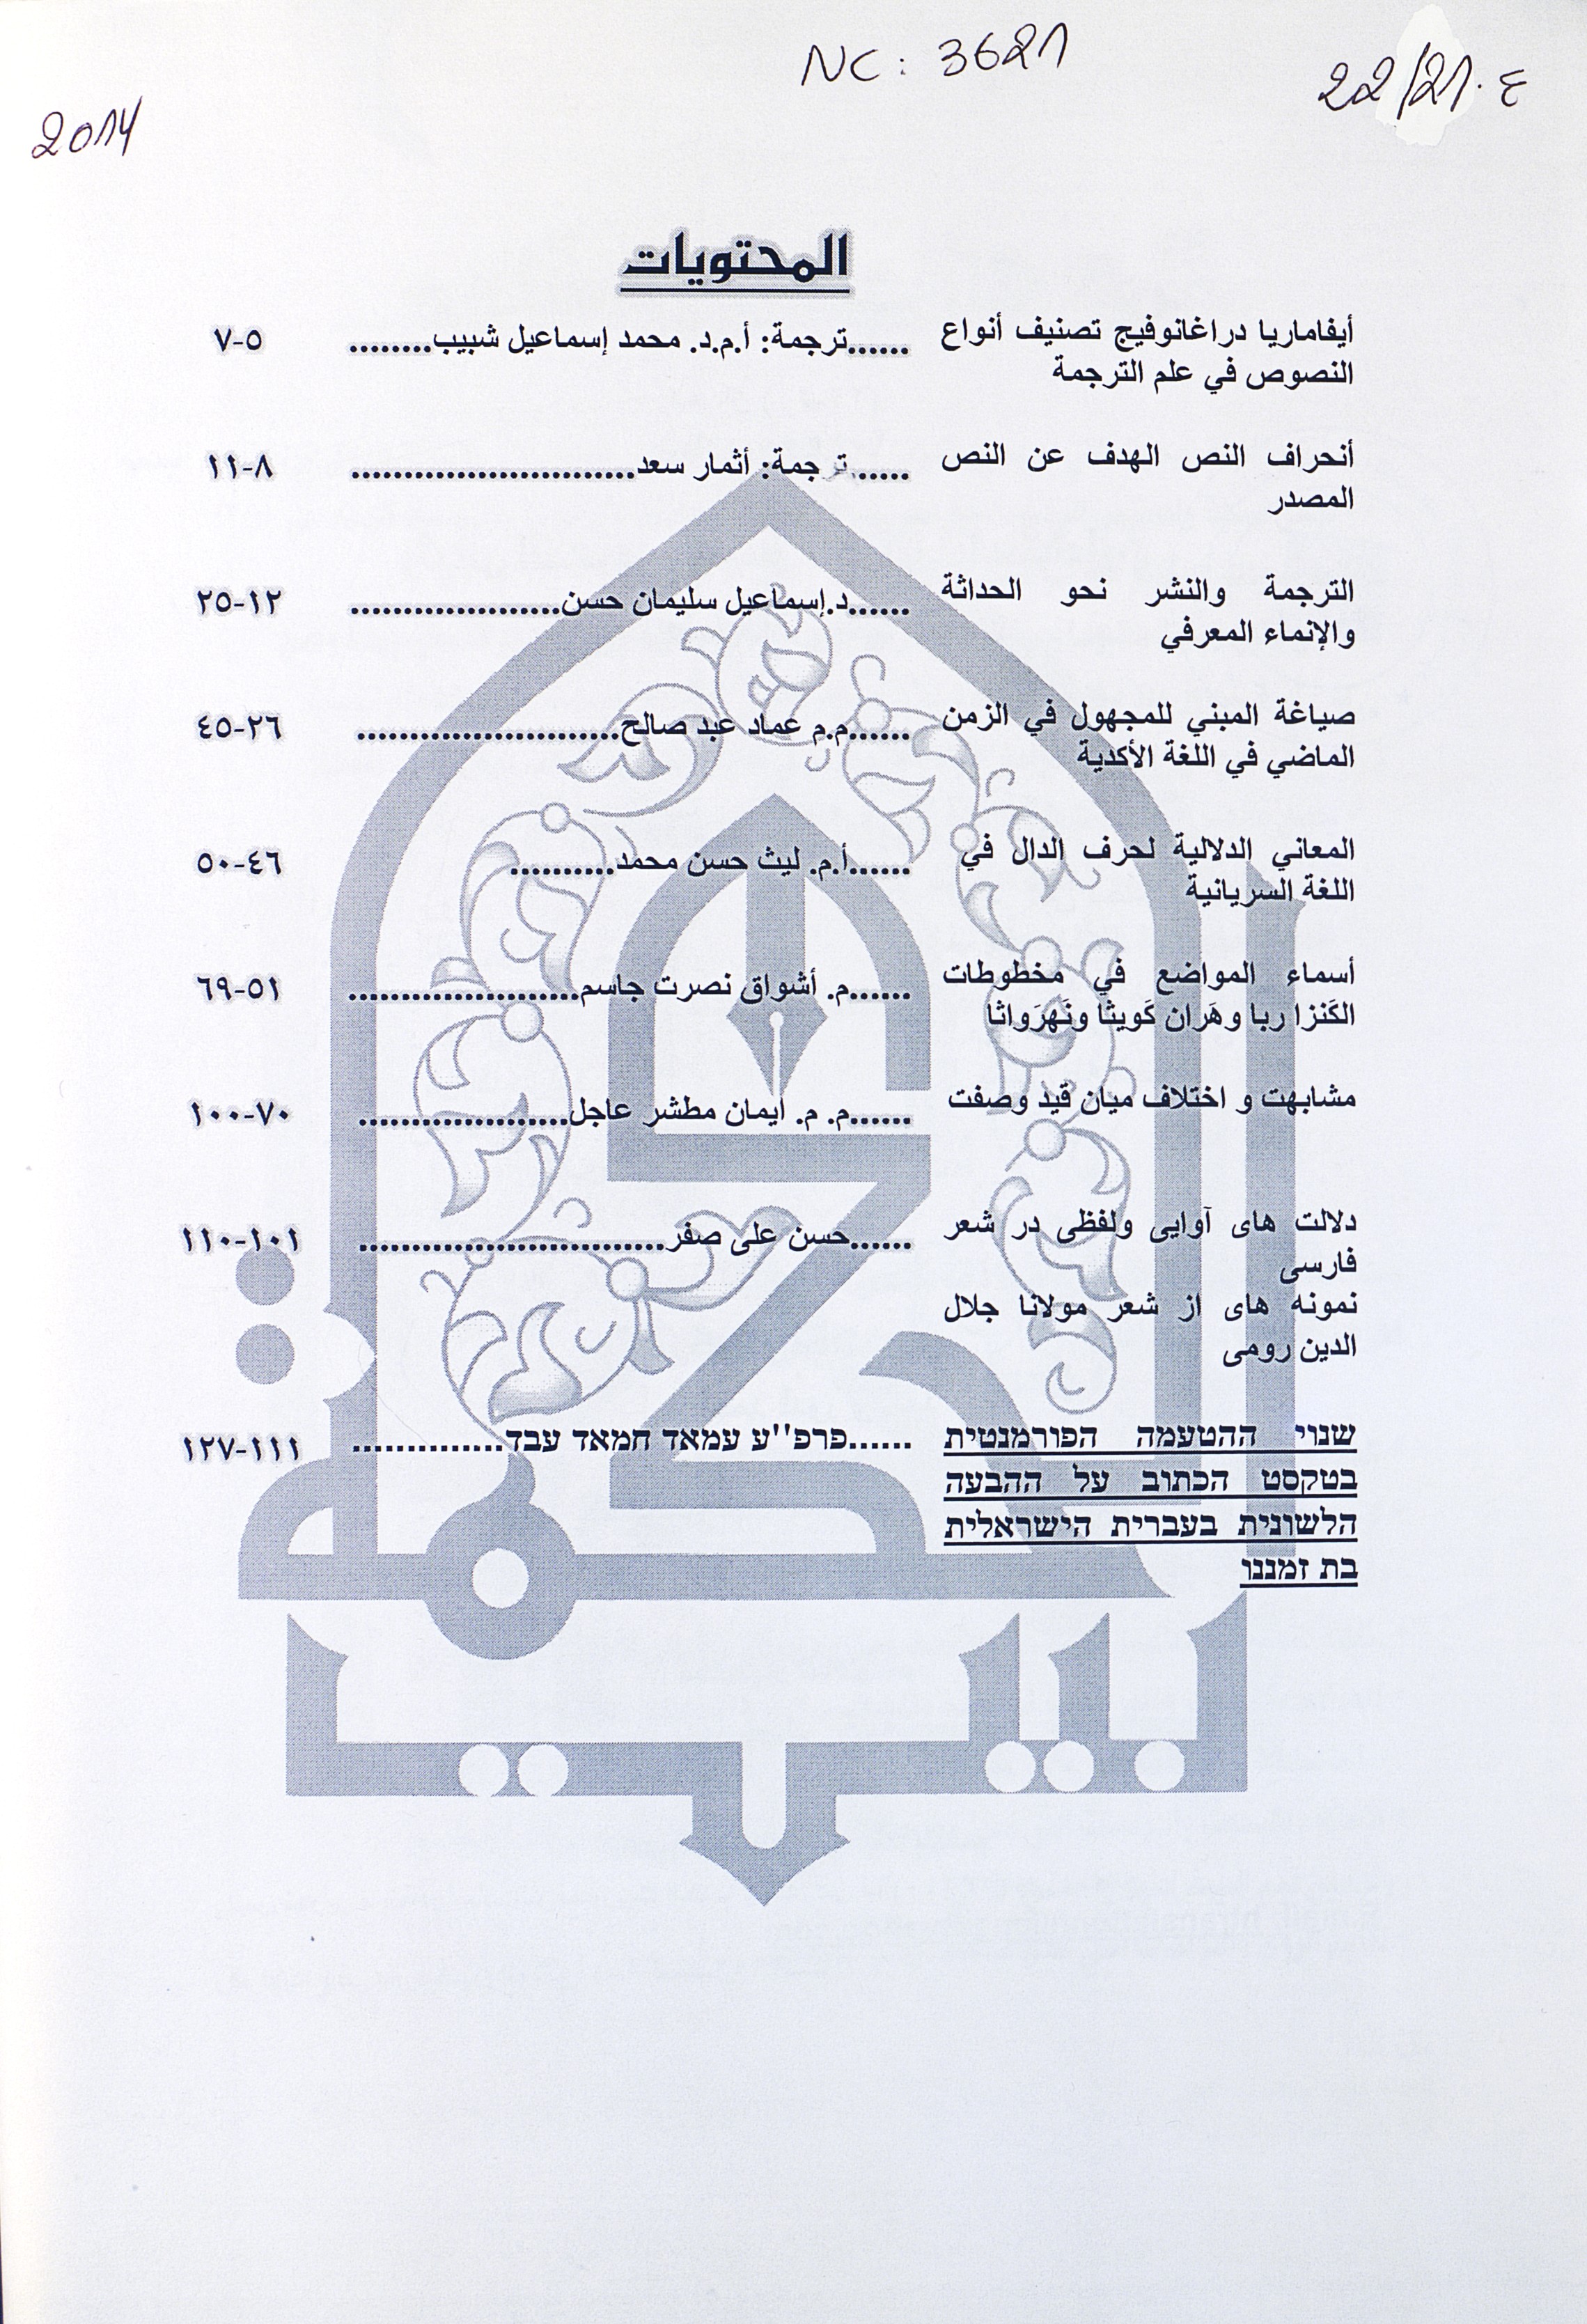 NC: 3621
22/21.ع
2014
المحتويات
أيفاماريا دراغانوفيج تصنيف أنواع ......ترجمة: أ.م.د. محمد إسماعيل شبيب........ ٥-٧
النصوص في علم الترجمة
أنحراف النص الهدف عن النص ......ترجمة: أثمار سعد........................... ٨-١١
المصدر
الترجمة والنشر نحو الحداثة ......د.إسماعيل سليمان حسن.................... ١٢-٢٥
والإنماء المعرفي
صياغة المبني للمجهول في الزمن ......م.م عماد عبد صالح......................... ٢٦-٤٥
الماضي في اللغة الأكدية
المعاني الدلالية لحرف الدال في ......أ.م. ليث حسن محمد.......... ٤٦-٥٠
اللغة السريانية
أسماء المواضع في مخطوطات ......م. أشواق نصرت جاسم...................... ٥١-٦٩
الكَنزا ربا وهَران كَويثا ونَهرَواثا
مشابهت و اختلاف ميان قيد وصفت ......م. م. ايمان مطشر عاجل.................... ٧٠-١٠٠
دلالت های آوایی ولفظی در شعر ......حسن علی صفر............................. ١٠١-١١٠
فارسی
نمونه های از شعر مولانا جلال
الدین رومی
שנוי ההטעמה הפורמנטית ......פרפ''ע עמאד חמאד עבד.............. ١١١-١٢٧
בטקסט הכתוב על ההבעה
הלשונית בעברית הישראלית
בת זמננו
بيت
الحكمة